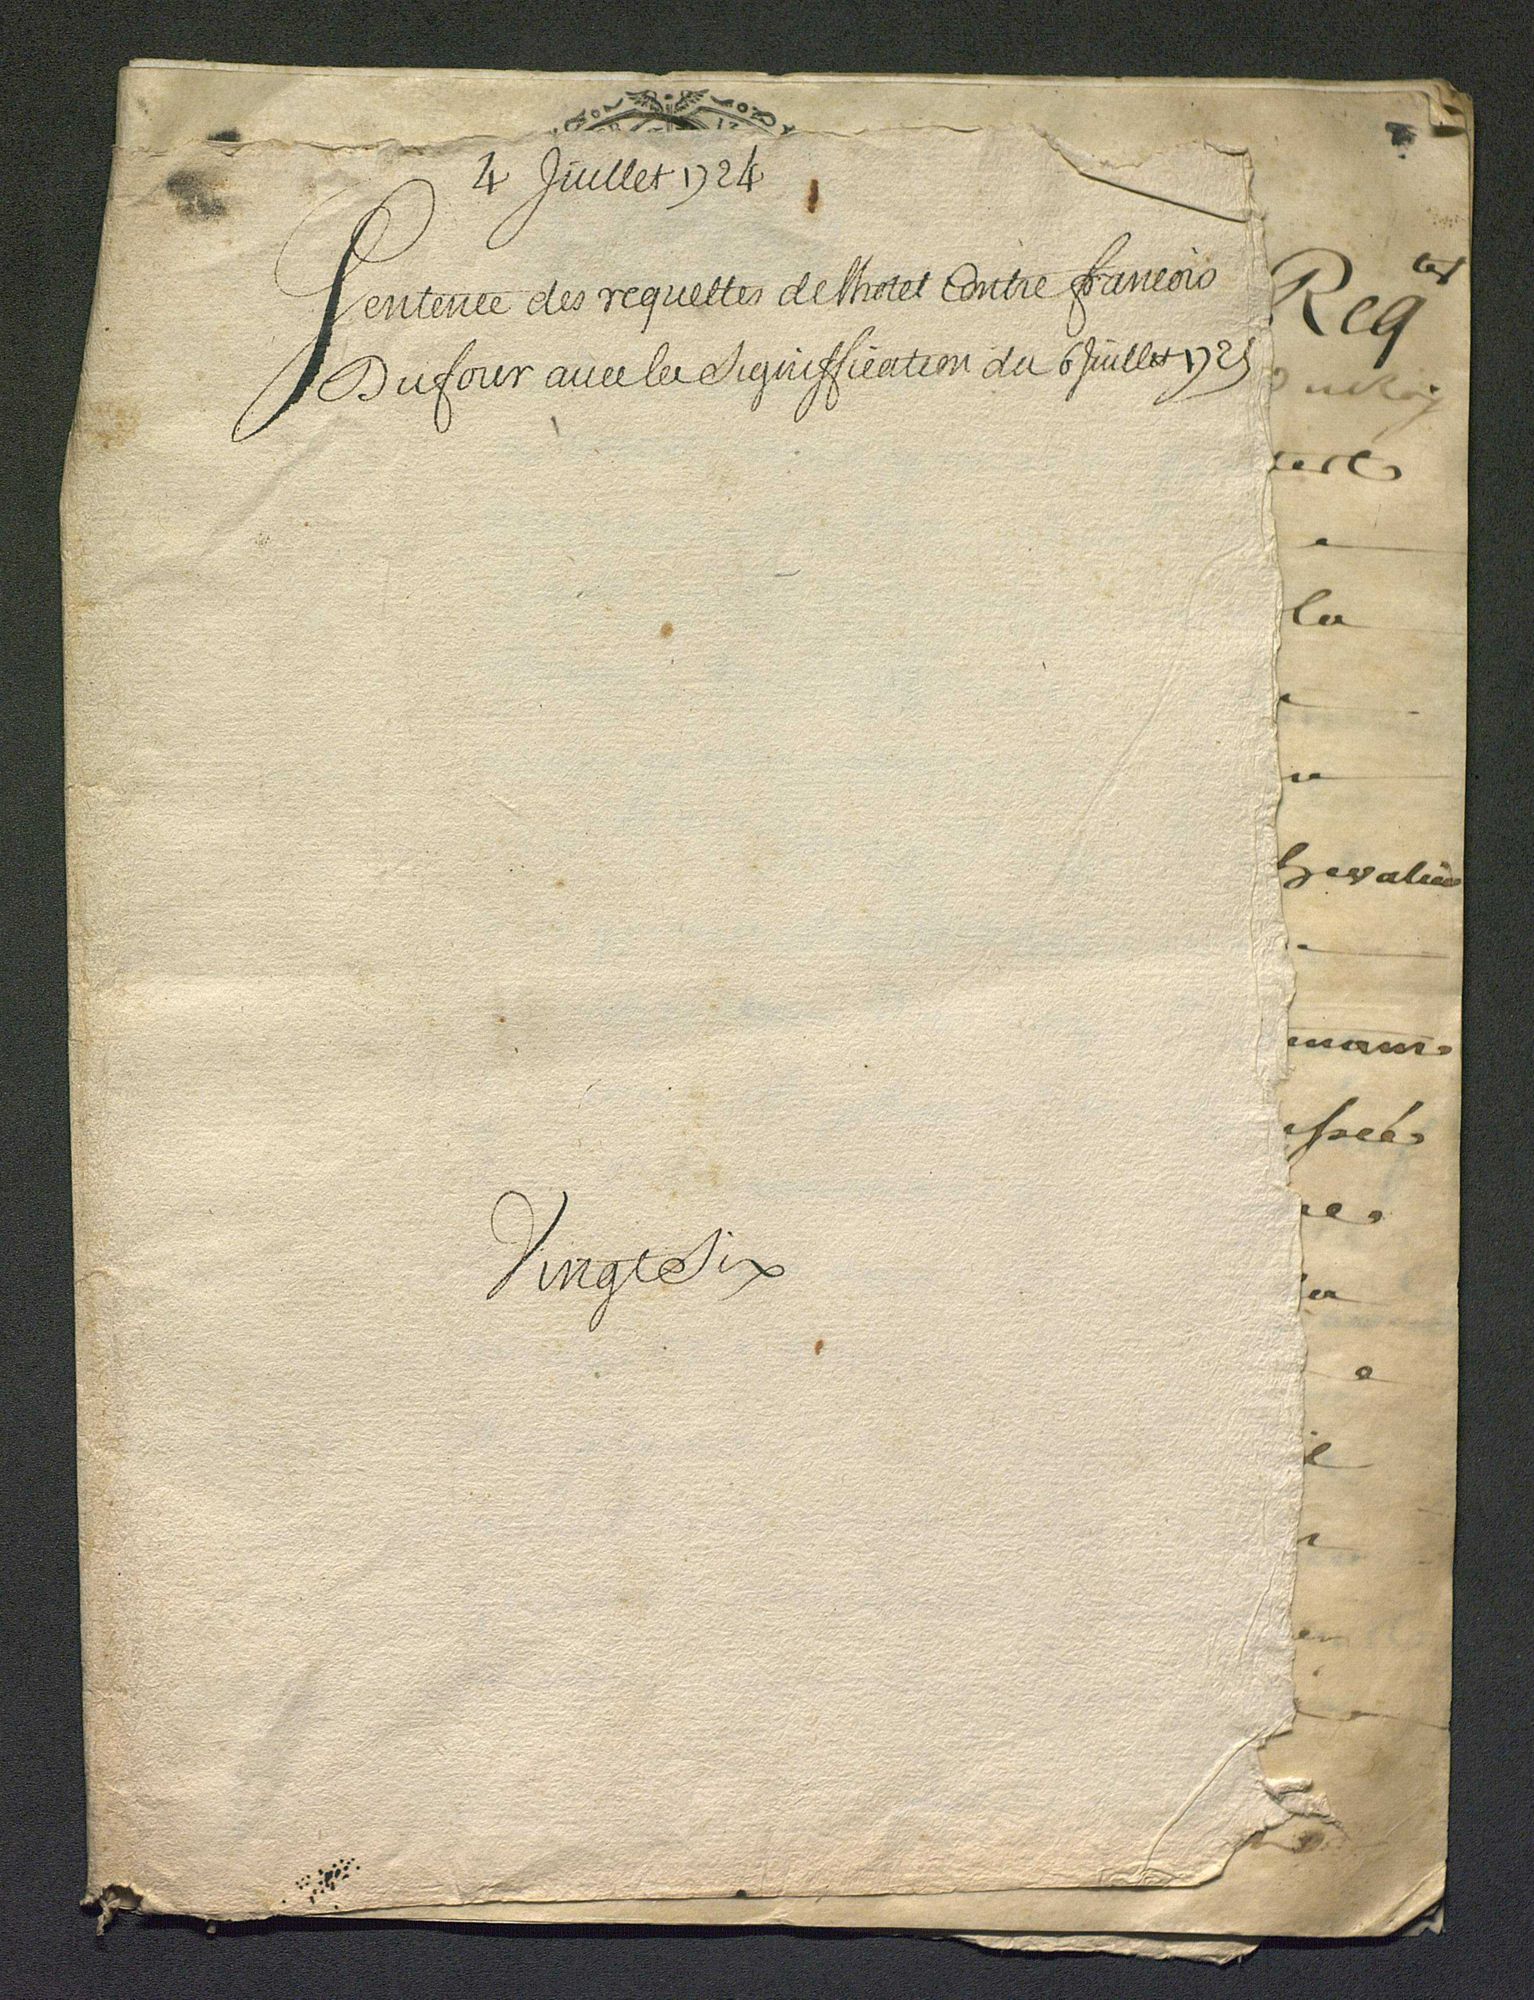 4 Juillet 1724
Sentence des requettes de lhotel Contre francois
Dufour avec la Signiffication du 6 Juillet 1725
Vingt Six
Req tes
la
hevalier